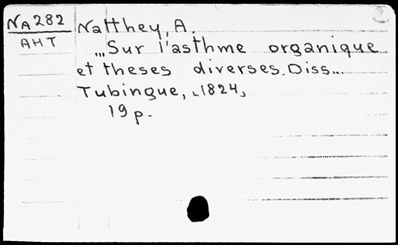 NA282 Natthey, A.
AHT ...Sur l'asthme organique
et theses diverses. Diss...
Tubingue, ˪1824˼
19 p.